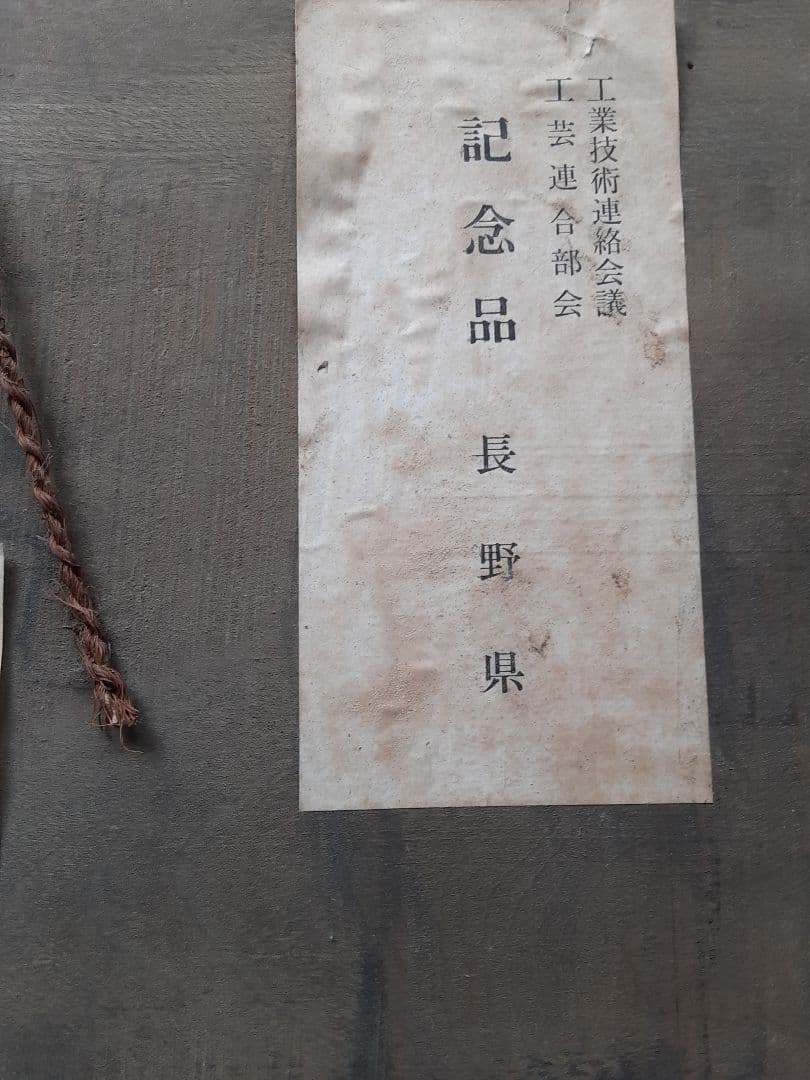 工業技術連絡会議
工芸連合部会
記念品 長野県